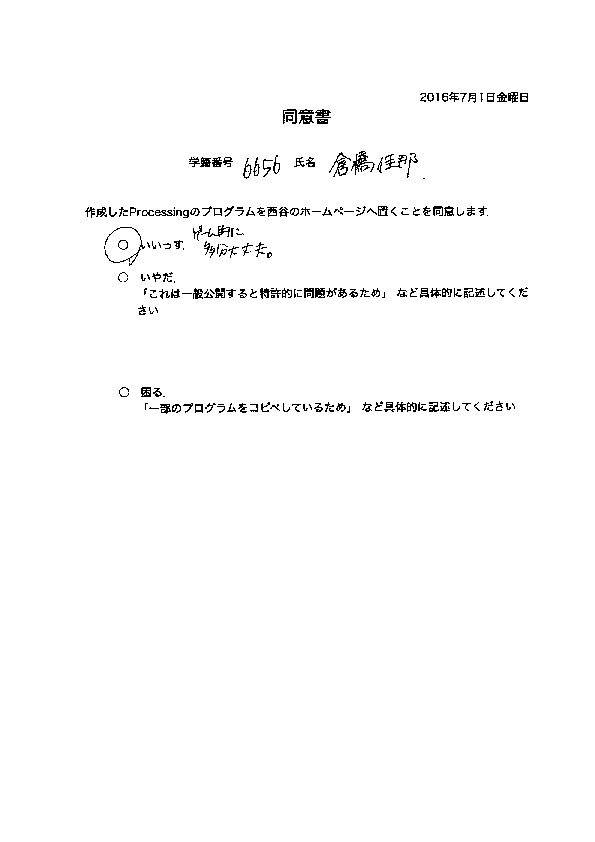 2016年7月1日金曜日
同意書
学籍番号 6656 氏名 倉橋佳那
作成したProcessingのプログラムを西谷のホームページへ置くことを同意します.
○ いいっす. ゲーム的に
多分大丈夫。
○ いやだ.
「これは一般公開すると特許的に問題があるため」 など具体的に記述してくだ
さい
○ 困る.
「一部のプログラムをコピペしているため」 など具体的に記述してください